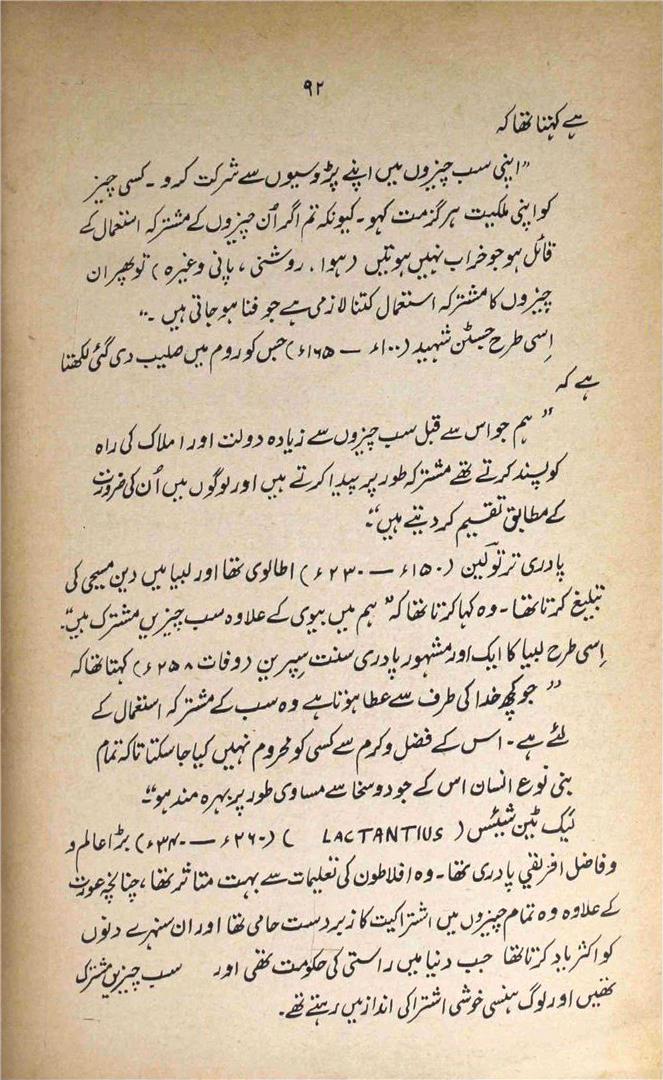 ۹۲
ہے کہتا تھا کہ
"اپنی سب چیزوں میں اپنے پڑوسیوں سے شرکت کرو ۔ کسی چیز
کو اپنی ملکیت ہرگز مت کہو ۔ کیونکہ تم اگر اُن چیزوں کے مشترکہ استعمال کے
قائل ہو جو خراب نہیں ہوتیں (ہوا ، روشنی ، پانی وغیرہ) تو پھر ان
چیزوں کا مشترکہ استعمال کتنا لازمی ہے جو فنا ہو جاتی ہیں ۔"
اِسی طرح جسٹن شہید (۱۰۰ء — ۱۶۵ء) جس کو روم میں صلیب دی گئی لکھتا
ہے کہ
"ہم جو اس سے قبل سب چیزوں سے زیادہ دولت اور املاک کی راہ
کو پسند کرتے تھے مشترکہ طور پر پیدا کرتے ہیں اور لوگوں میں اُن کی ضرورت
کے مطابق تقسیم کر دیتے ہیں"۔
پادری ترتولین (۱۵۰ء — ۲۳۰ء) اطالوی تھا اور لبیا میں دین مسیحی کی
تبلیغ کرتا تھا ۔ وہ کہا کرتا تھا کہ "ہم میں بیوی کے علاوہ سب چیزیں مشترک ہیں"۔
اِسی طرح لبیا کا ایک اور مشہور پادری سنت سِپرین (وفات ۲۵۸ء) کہتا تھا کہ
"جو کچھ خدا کی طرف سے عطا ہوتا ہے وہ سب کے مشترکہ استعمال کے
لئے ہے ۔ اس کے فضل و کرم سے کسی کو محروم نہیں کیا جا سکتا تاکہ تمام
بنی نوع انسان اس کے جود و سخا سے مساوی طور پر بہرہ مند ہو"۔
لیک ٹین شیئس (LACTANTIUS) (۲۶۰ء — ۳۴۰ء) بڑا عالم و
و فاضل افریقی پادری تھا ۔ وہ افلاطون کی تعلیمات سے بہت متاثر تھا ، چنانچہ عورت
کے علاوہ وہ تمام چیزوں میں اشتراکیت کا زبردست حامی تھا اور ان سنہرے دنوں
کو اکثر یاد کرتا تھا جب دنیا میں راستی کی حکومت تھی اور سب چیزیں مشترک
تھیں اور لوگ ہنسی خوشی اشتراکی انداز میں رہتے تھے ۔